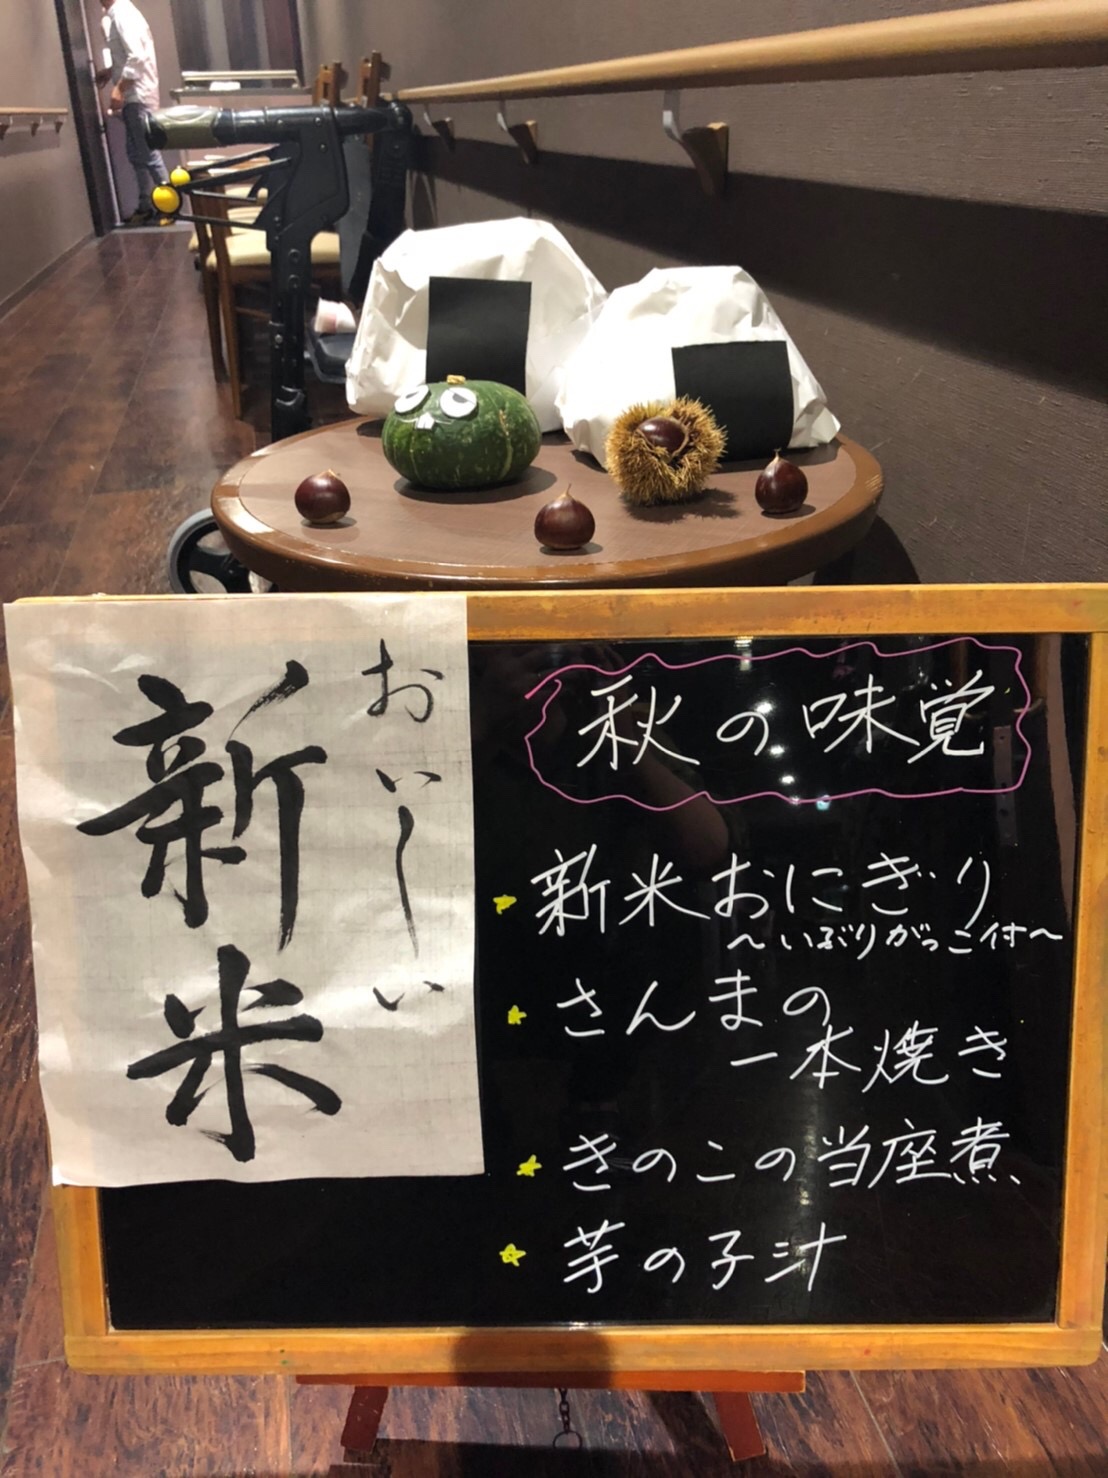 おいしい
新米
秋の味覚
新米おにぎり
～いぶりがっこ付～
さんまの
一本焼き
きのこの当座煮
芋の子汁